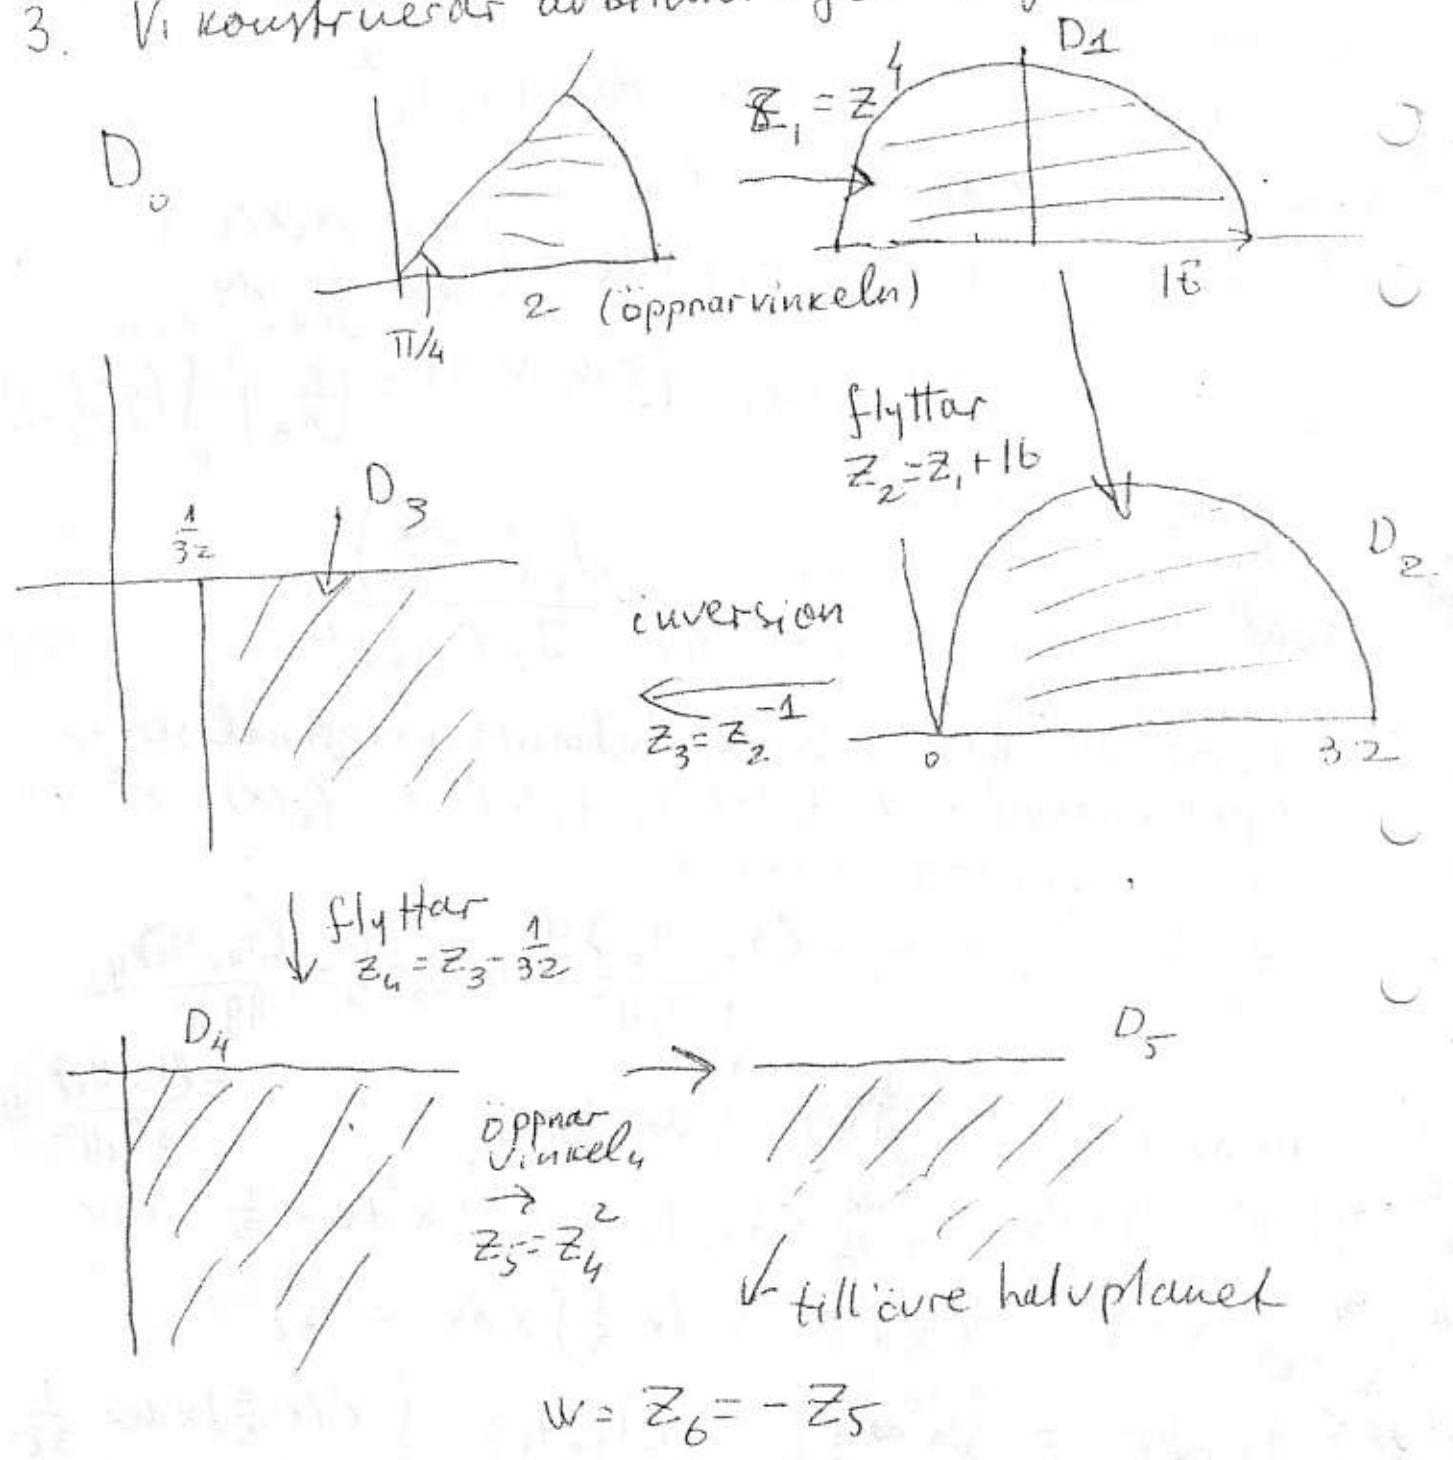 3. Vi konstruerar
D₀
π/4
2 (öppnar vinkeln)
Z₁ = Z⁴
D1
16
flyttar
Z₂ = Z₁ + 16
D₂
0
32
inversion
Z₃ = Z₂⁻¹
D₃
1/32
flyttar
Z₄ = Z₃ - 1/32
D₄
öppnar
vinkeln
Z₅ = Z₄²
D₅
till övre halvplanet
w = Z₆ = - Z₅